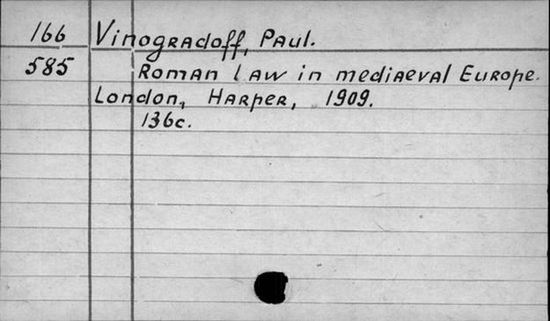 166 Vinogradoff, Paul.
585 Roman law in mediaeval Europe.
London, Harper, 1909.
136c.